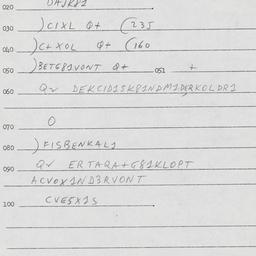 020
030 )CIXL Q+ (235
040 )C+XOL Q+ (160
050 )BETG81VONT Q+ 051 +
060 Qv DEKCID1SK81NDM1DERKOLDR1
070 O
080 )FISBENKAL1
090 Qv ERTAQA+G81KLOPT
ACVOX1ND3RVONT
100 CVE5X1S